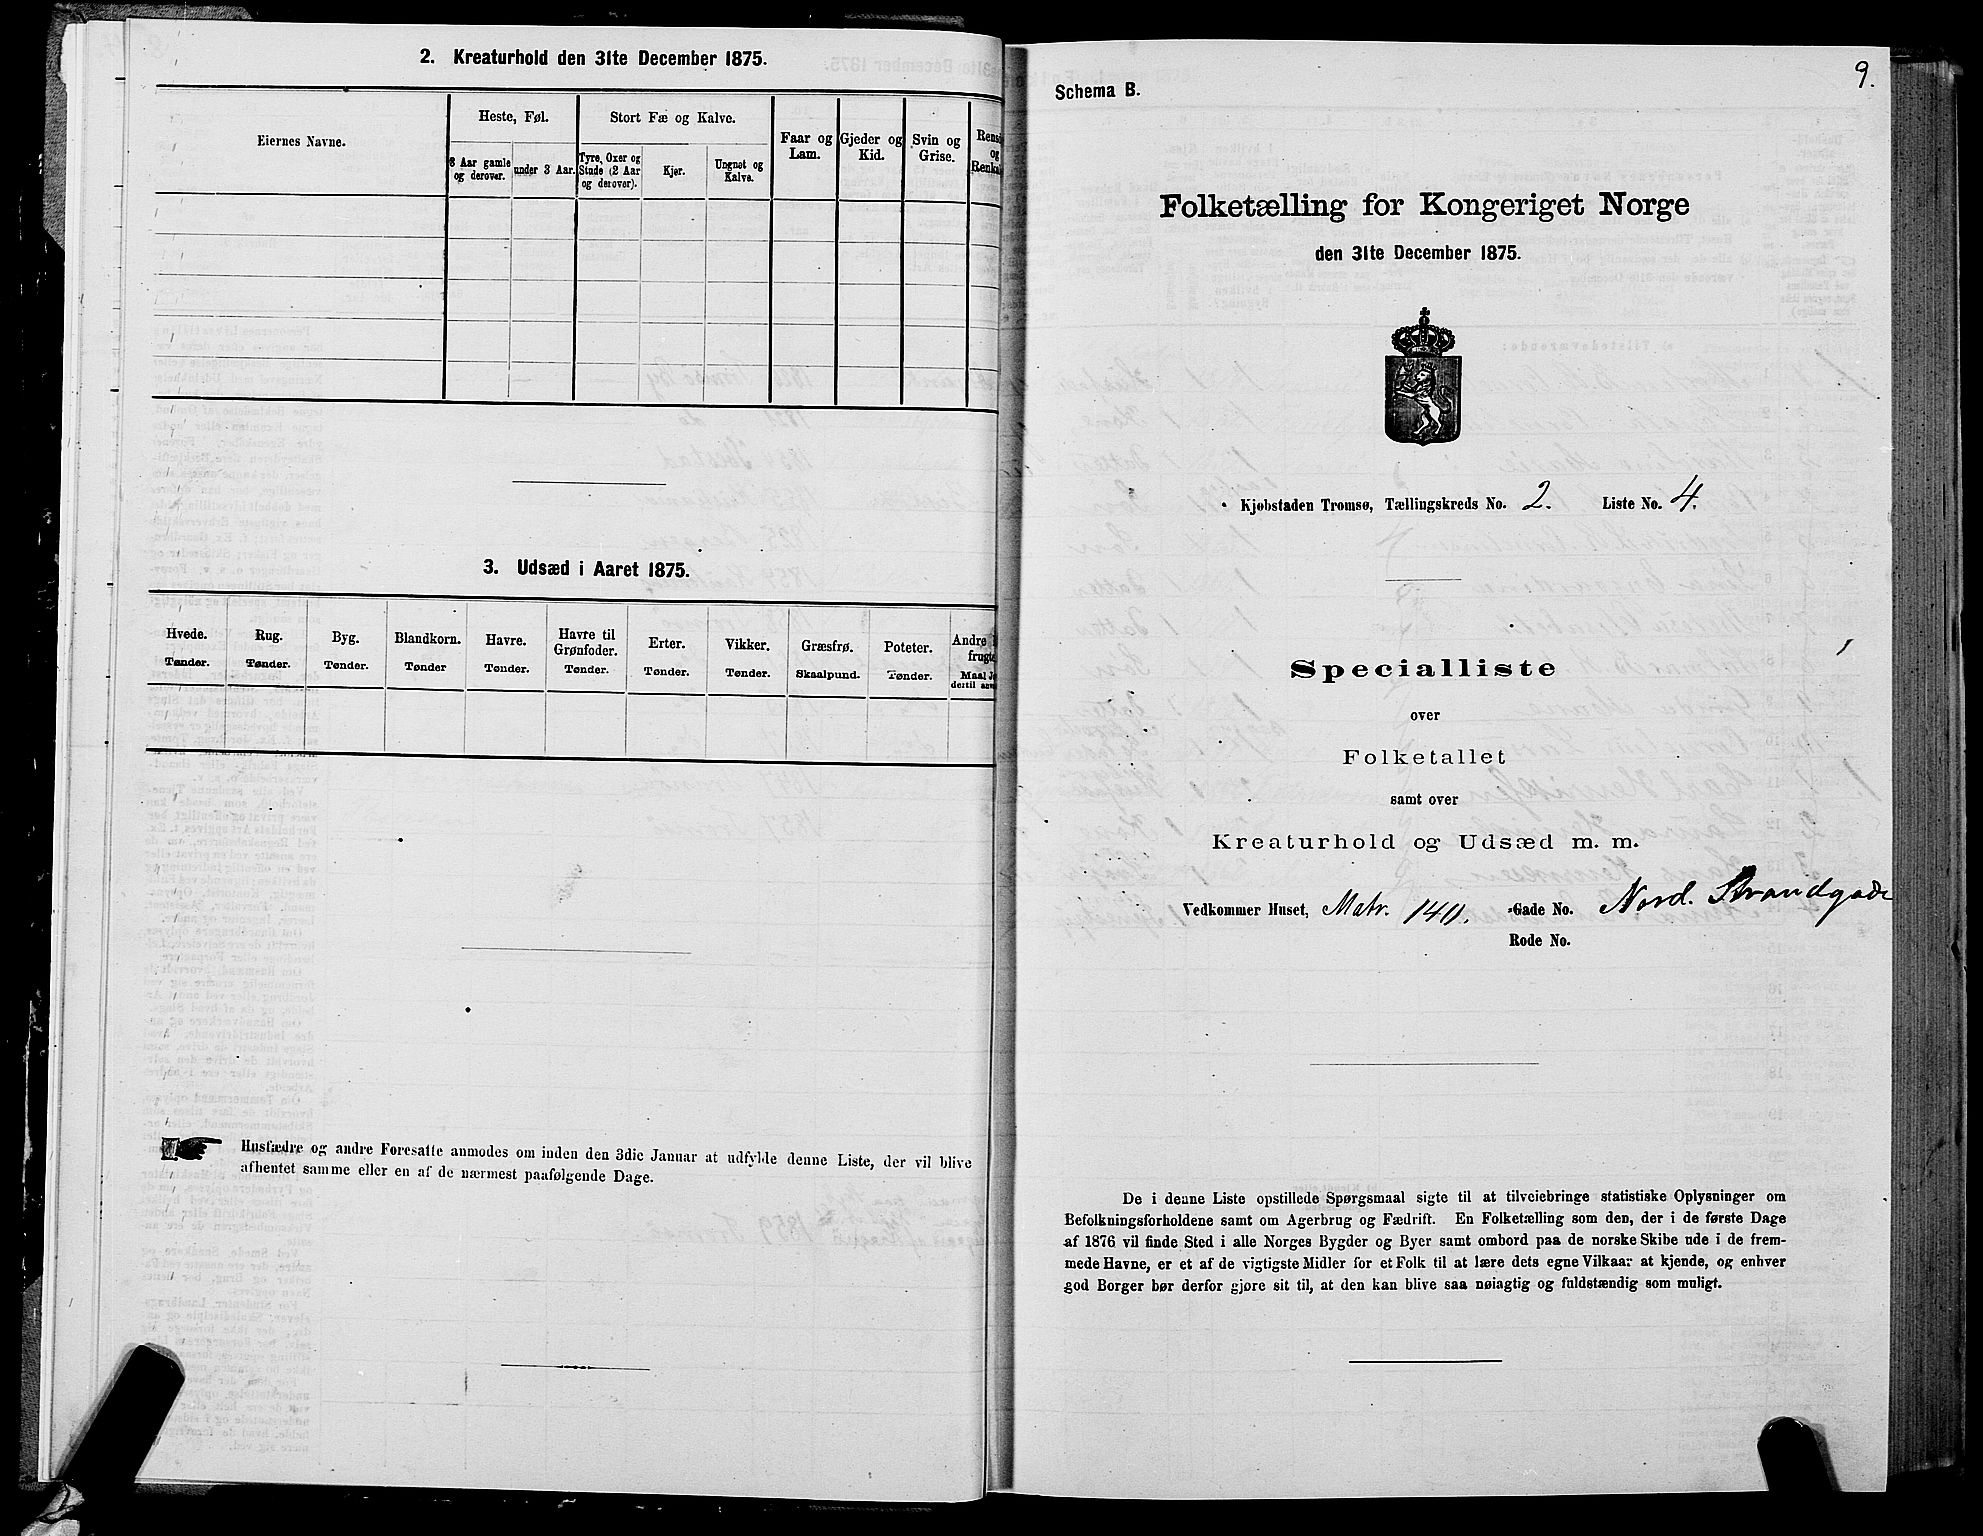 2. Kreaturhold den 31te December 1875.
Eiernes Navne.
Heste, Føl.
Stort Fæ og Kalve.
Faar og Lam.
Gjeder og Kid.
Svin og Grise.
Rensd
og
Renkal
3 Aar gamle og derover.
under 3 Aar.
Tyre, Oxer og Stude (2 Aar og derover).
Kjør.
Ungnøt og Kalve.
3. Udsæd i Aaret 1875.
Hvede.
Tønder.
Rug.
Tønder.
Byg.
Tønder.
Blandkorn.
Tønder
Havre.
Tønder.
Havre til Grønfoder.
Tønder.
Erter.
Tønder.
Vikker.
Tønder.
Græsfrø.
Skaalpund.
Poteter.
Tønder.
Andre
frugt
Maal J
dertil an
Husfædre og andre Foresatte anmodes om inden den 3die Januar at udfylde denne Liste, der vil blive
afhentet samme eller en af de nærmest paafølgende Dage.
9.
Schema B.
Folketælling for Kongeriget Norge
den 31te December 1875.
Kjøbstaden Tromsø, Tællingskreds No. 2. Liste No. 4.
Specialliste
over
Folketallet
samt over
Kreaturhold og Udsæd m. m.
Vedkommer Huset, Matr. 140. -Gade No. Nord. Strandgade
Rode No.
De i denne Liste opstillede Spørgsmaal sigte til at tilveiebringe statistiske Oplysninger om
Befolkningsforholdene samt om Agerbrug og Fædrift. En Folketælling som den, der i de første Dage
af 1876 vil finde Sted i alle Norges Bygder og Byer samt ombord paa de norske Skibe ude i de frem-
mede Havne, er et af de vigtigste Midler for et Folk til at lære dets egne Vilkaar at kjende, og enhver
god Borger bør derfor gjøre sit til, at den kan blive saa nøiagtig og fuldstændig som muligt.